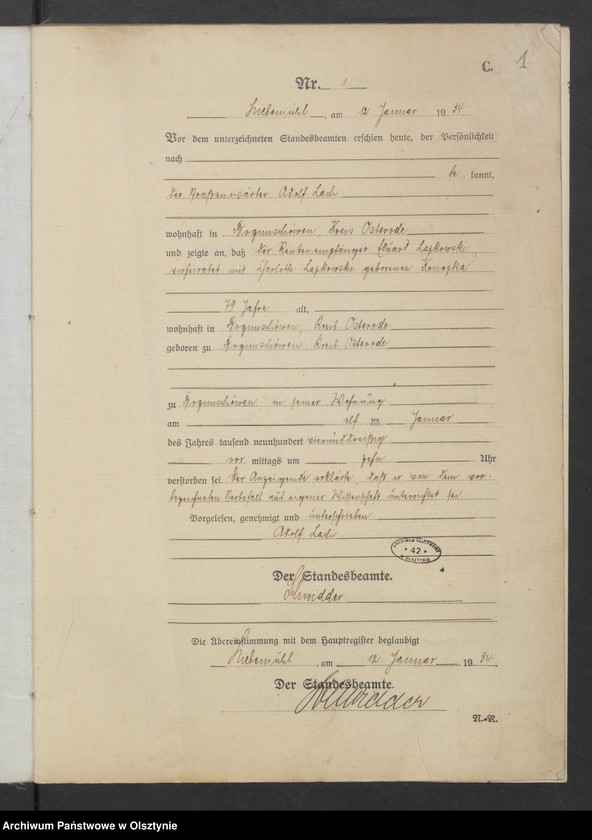 C. 1
Nr. 1
Liebemühl, am 12 Januar 1934.
Vor dem unterzeichneten Standesbeamten erschien heute, der Persönlichkeit
nach
be kannt,
der Straßenwärter Adolf Lach
wohnhaft in Bogunschöwen, Kreis Osterode
und zeigte an, daß der Rentenempfänger Eduard Lapkowski,
verheiratet mit Charlotte Lapkowski geborenen Konopka
79 Jahre alt,
wohnhaft in Bogunschöwen, Kreis Osterode
geboren zu Bogunschöwen, Kreis Osterode
zu Bogunschöwen in seiner Wohnung
am elf ten Januar
des Jahres tausend neunhundert vierunddreißig
vor mittags um zehn Uhr
verstorben sei. Der Anzeigende erklärte, daß er von dem vor-
bezeichneten Sterbefall aus eigener Wissenschaft unterrichtet sei.
Vorgelesen, genehmigt und unterschrieben
Adolf Lach
ARCHIWUM PAŃSTWOWE
* 42 *
W OLSZTYNIE
Der Standesbeamte.
Schwedder
Die Übereinstimmung mit dem Hauptregister beglaubigt
Liebemühl, am 12. Januar 1934.
Der Standesbeamte
Schwedder
N.-R.
Archiwum Państwowe w Olsztynie